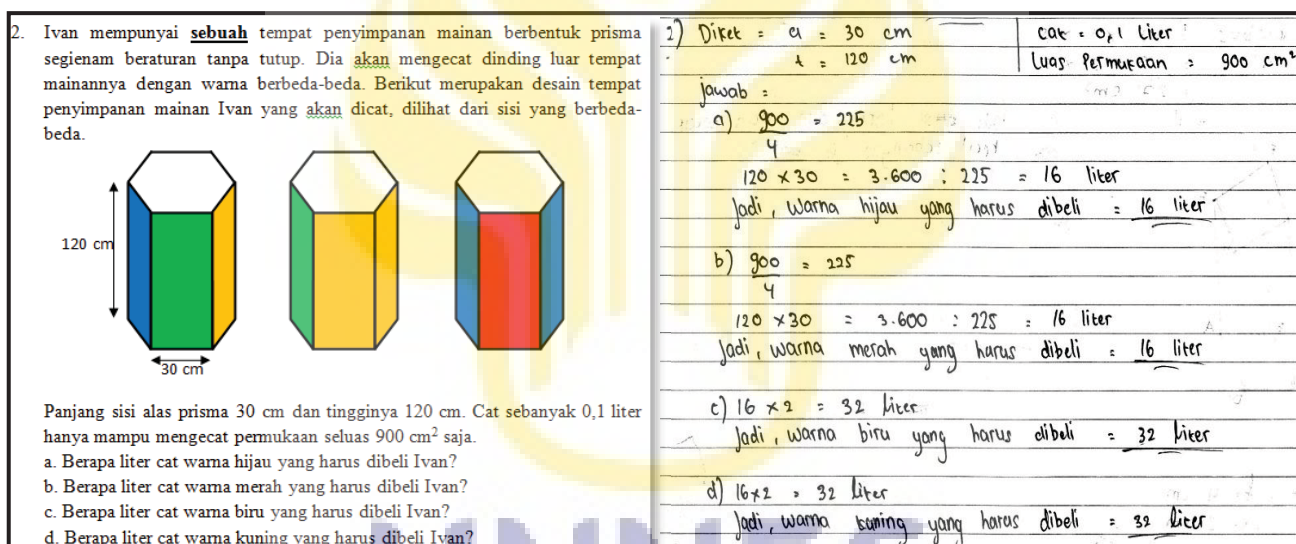 2. Ivan mempunyai sebuah tempat penyimpanan mainan berbentuk prisma
segienam beraturan tanpa tutup. Dia akan mengecat dinding luar tempat
mainannya dengan warna berbeda-beda. Berikut merupakan desain tempat
penyimpanan mainan Ivan yang akan dicat, dilihat dari sisi yang berbeda-
beda.
120 cm
30 cm
Panjang sisi alas prisma 30 cm dan tingginya 120 cm. Cat sebanyak 0,1 liter
hanya mampu mengecat permukaan seluas 900 cm² saja.
a. Berapa liter cat warna hijau yang harus dibeli Ivan?
b. Berapa liter cat warna merah yang harus dibeli Ivan?
c. Berapa liter cat warna biru yang harus dibeli Ivan?
d. Berapa liter cat warna kuning yang harus dibeli Ivan?
2) Diket = a = 30 cm
t = 120 cm
cat = 0,1 Liter
Luas Permukaan = 900 cm²
jawab =
a) 900/4 = 225
120 × 30 = 3.600 : 225 = 16 liter
Jadi, warna hijau yang harus dibeli = 16 liter
b) 900/4 = 225
120 × 30 = 3.600 : 225 = 16 liter
Jadi, warna merah yang harus dibeli = 16 liter
c) 16 × 2 = 32 Liter
Jadi, warna biru yang harus dibeli = 32 Liter
d) 16 × 2 = 32 liter
Jadi, warna kuning yang harus dibeli = 32 liter